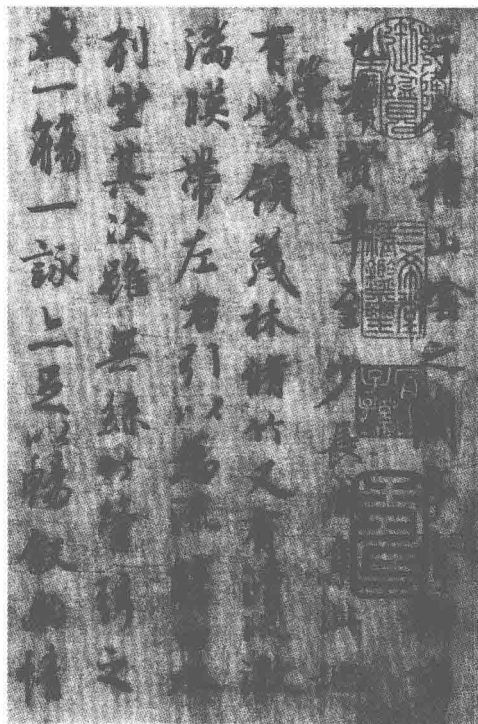 會稽山陰之
也群賢畢至少長咸集此地
崇山
有峻領茂林脩竹又有清流激
湍暎帶左右引以為流
列坐其次雖無絲竹管弦之
盛一觴一詠亦足以暢敘幽情